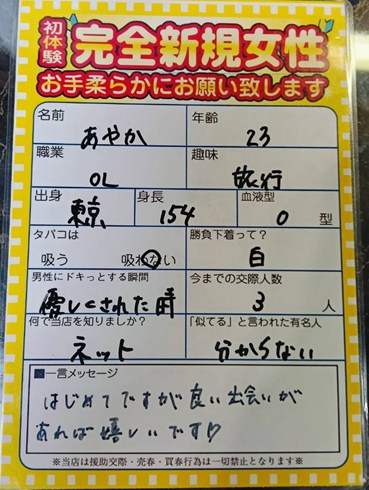 初体験
完全新規女性
お手柔らかにお願い致します
名前 年齢
あやか 23
職業 趣味
OL 旅行
出身 身長 血液型
東京 154 O 型
タバコは 勝負下着って？
吸う 吸わない 白
男性にドキっとする瞬間 今までの交際人数
優しくされた時 3 人
何で当店を知りましたか？ 「似てる」と言われた有名人
ネット 分からない
■一言メッセージ
はじめてですが良い出会いが
あれば嬉しいです!?
※当店は援助交際・売春・買春行為は一切禁止となります※